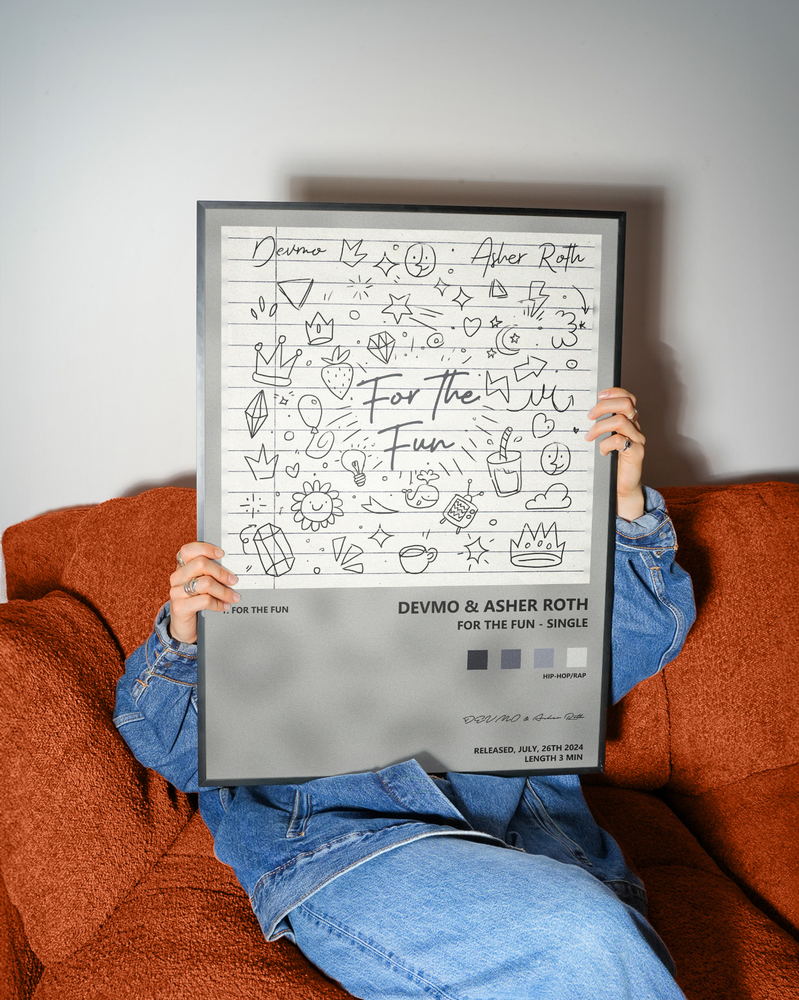 Devmo
Asher Roth
For the
Fun
. FOR THE FUN
DEVMO & ASHER ROTH
FOR THE FUN - SINGLE
HIP-HOP/RAP
DEVMO & Asher Roth
RELEASED, JULY, 26TH 2024
LENGTH 3 MIN